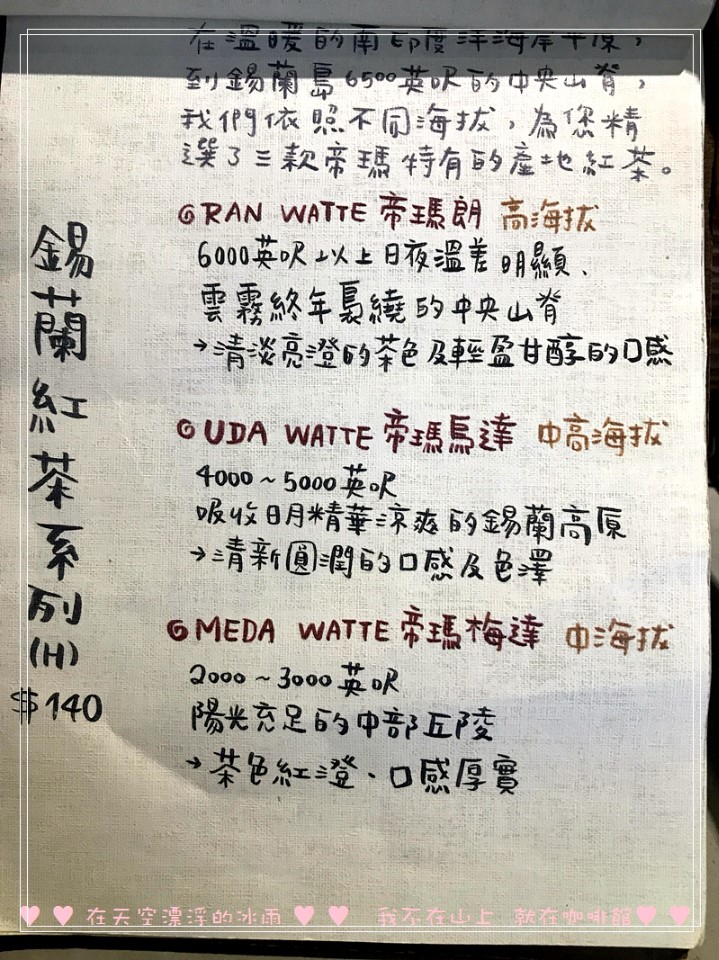 在溫暖的南印度洋海岸平原，
到錫蘭島6500英呎的中央山脊，
我們依照不同海拔，為您精
選了三款帝瑪特有的產地紅茶。
錫蘭紅茶系列
(H)
$140
RAN WATTE 帝瑪朗 高海拔
6000英呎以上日夜溫差明顯、
雲霧終年裊繞的中央山脊
→清淡亮澄的茶色及輕盈甘醇的口感
UDA WATTE 帝瑪烏達 中高海拔
4000~5000英呎
吸收日月精華涼爽的錫蘭高原
→清新圓潤的口感及色澤
MEDA WATTE 帝瑪梅達 中海拔
2000~3000英呎
陽光充足的中部丘陵
→茶色紅澄、口感厚實
♥ ♥ 在天空漂浮的冰雨 ♥ ♥ 我不在山上 就在咖啡館 ♥ ♥